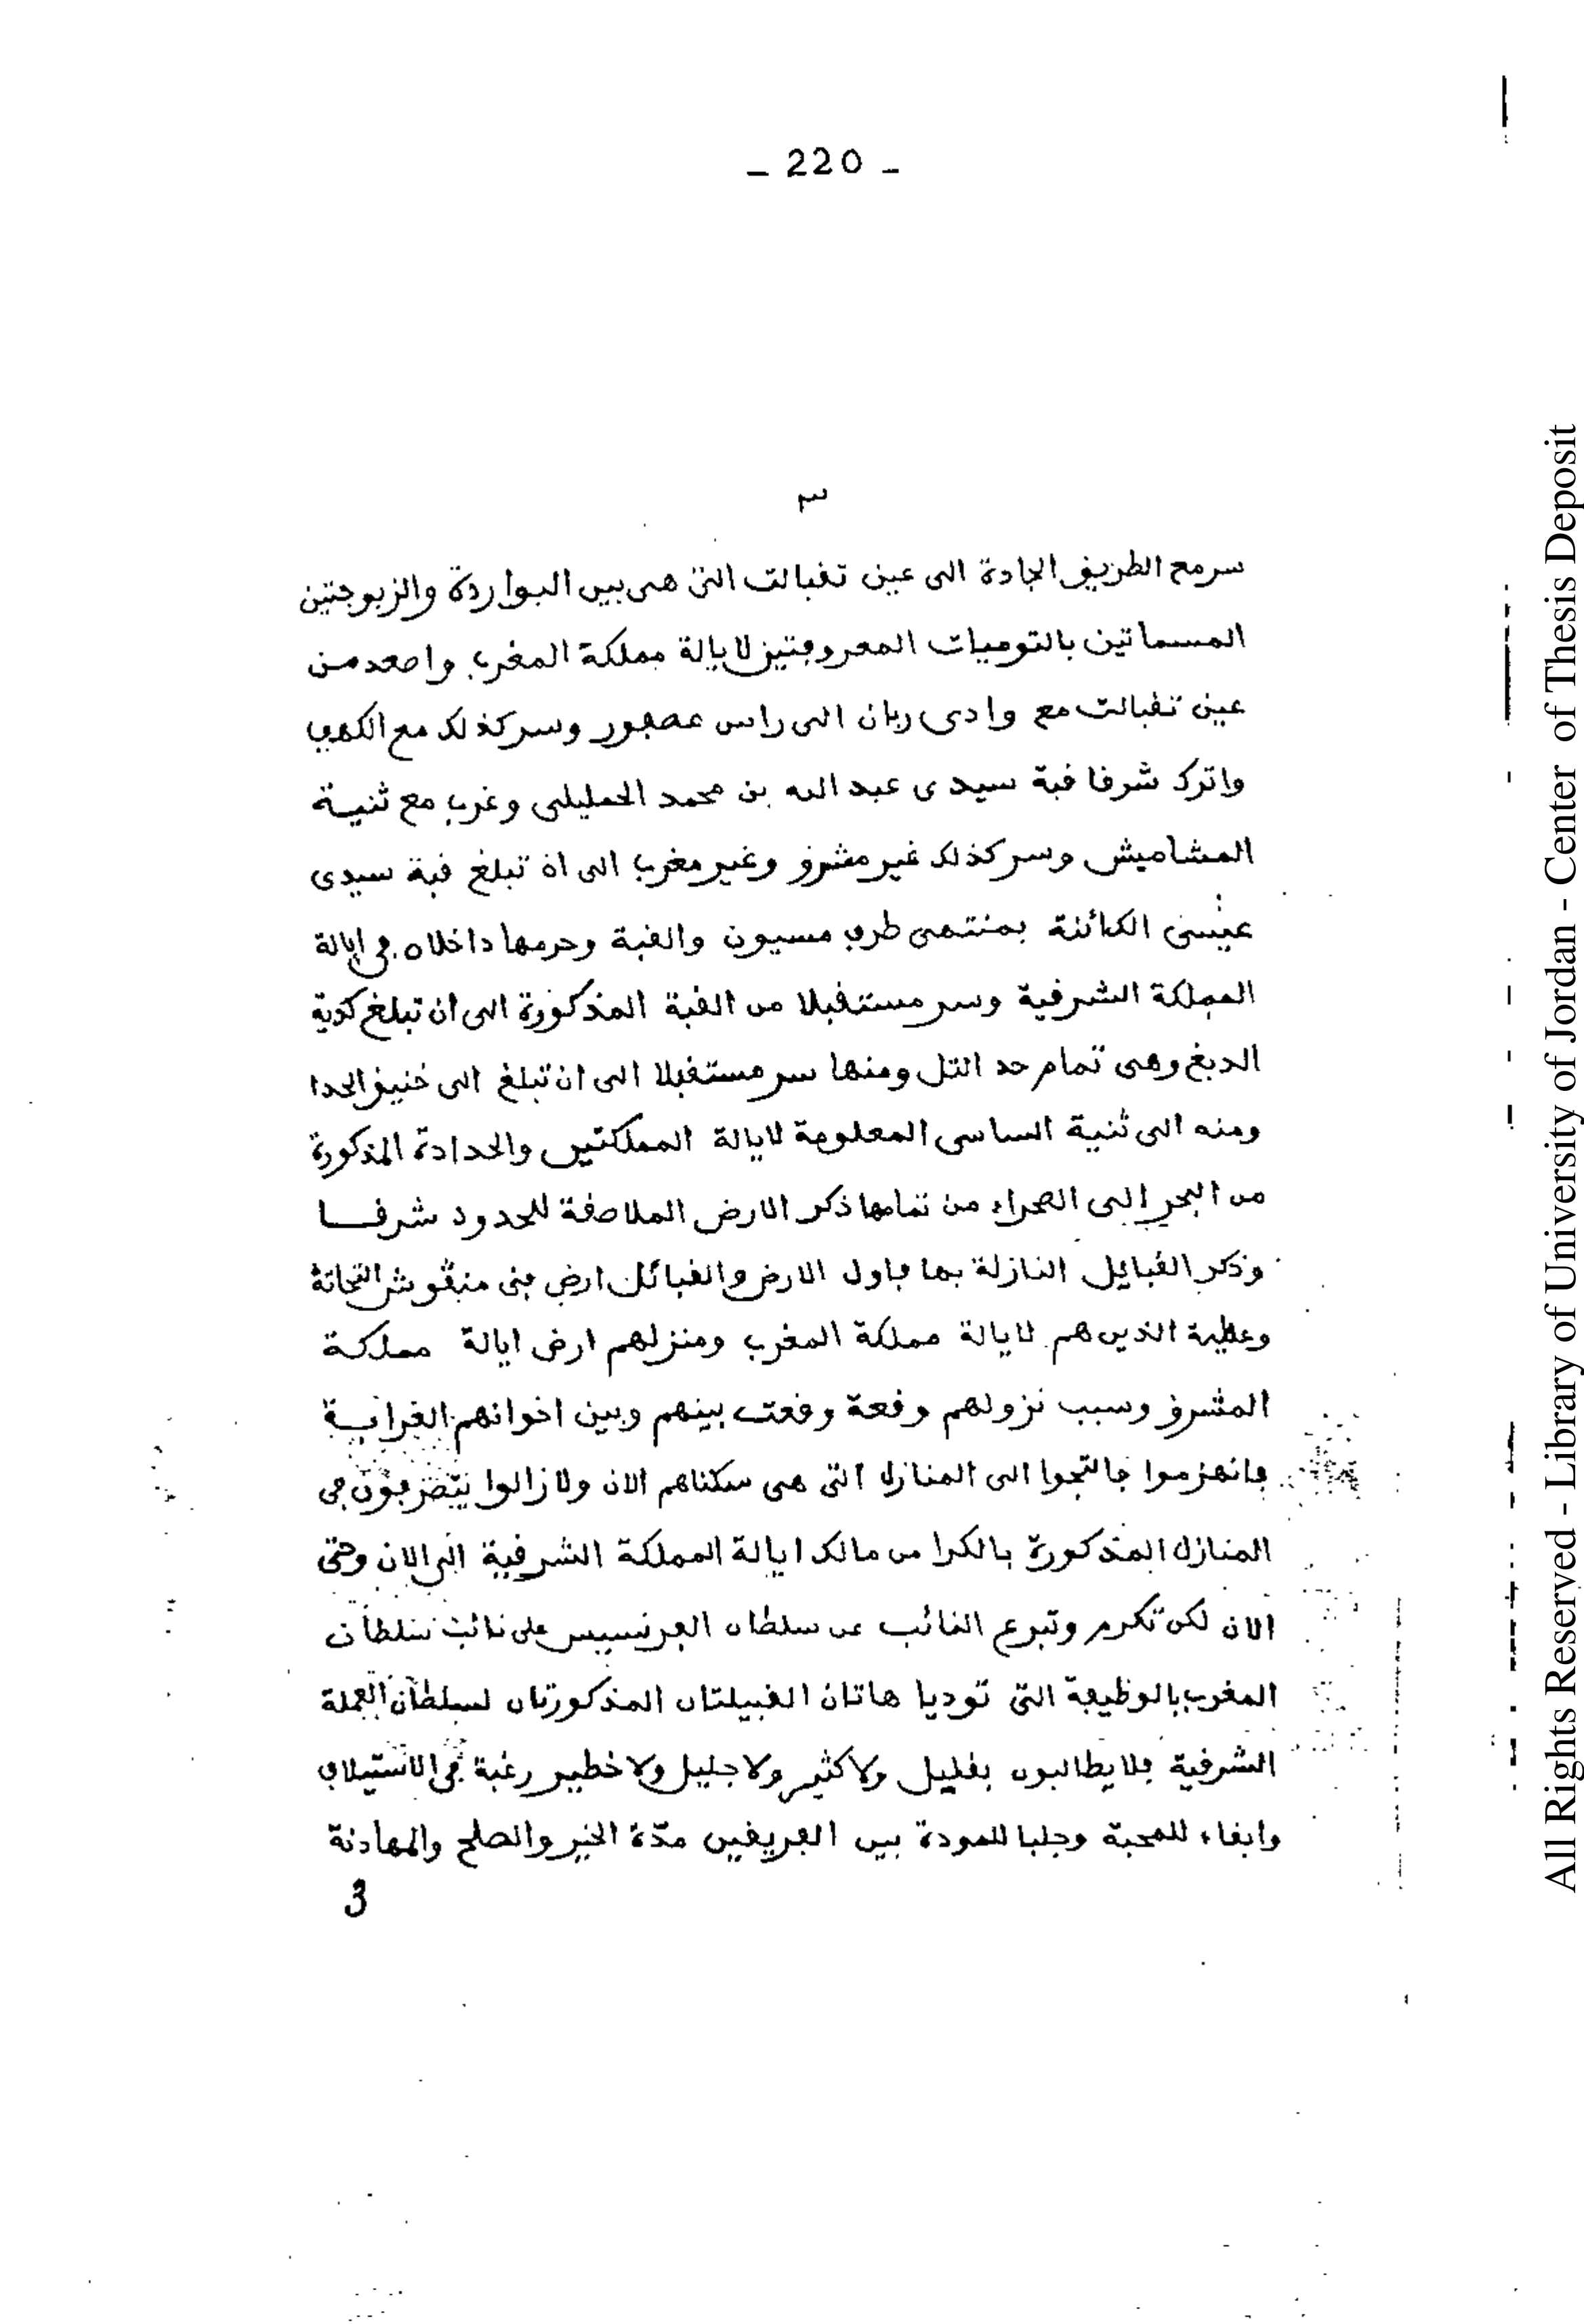 - 220 -
٣
سر مع الطريق الجادة الى عين تقبالت التى هى بين البواردة والزبوجتين
المسماتين بالتوميات المعروفتين لايالة مملكة المغرب واصعد من
عين تقبالت مع وادى ربان الى راس عصفور وسر كذلك مع الكهف
واترك شرفا قبة سيدى عبد الله بن محمد الحمليلى وغرب مع ثنية
المشاميش وسر كذلك غير مشرق وغير مغرب الى ان تبلغ قبة سيدى
عيسى الكائنة بمنتهى طرف مسيون والقبة وحرمها داخلان فى ايالة
المملكة الشرقية وسر مستقبلا من القبة المذكورة الى ان تبلغ كدية
الدبغ وهى تمام حد التل ومنها سر مستقبلا الى ان تبلغ الى خنيق الحدا
ومنه الى ثنية الساسى المعلومة لايالة المملكتين والحدادة المذكورة
من البحر الى الصحراء من تمامها ذكر الارض الملاصقة للحدود شرقا
وذكر القبايل النازلة بها فاول الارض والقبائل ارض بنى منڤوش التحاتة
وعطية الذين هم لايالة مملكة المغرب ومنزلهم ارض ايالة مملكة
المشرق وسبب نزولهم وقعة وقعت بينهم وبين اخوانهم الغرابة
فانهزموا فالتجوا الى المنازل التى هى سكناهم الان ولا زالوا يتصرفون فى
المنازل المذكورة بالكرا من مالك ايالة المملكة الشرقية الى الان وحتى
الان لكن تكرم وتبرع النائب عن سلطان الفرنسيس على نائب سلطان
المغرب بالوظيفة التى توديا هاتان القبيلتان المذكورتان لسلطان العملة
الشرقية فلا يطالبون بقليل ولا كثير ولا جليل ولا خطير رغبة فى الاستيلاف
وابقاء للمحبة وجلبا للمودة بين الفريقين مدة الخير والصلح والمهادنة
3
All Rights Reserved - Library of University of Jordan - Center of Thesis Deposit